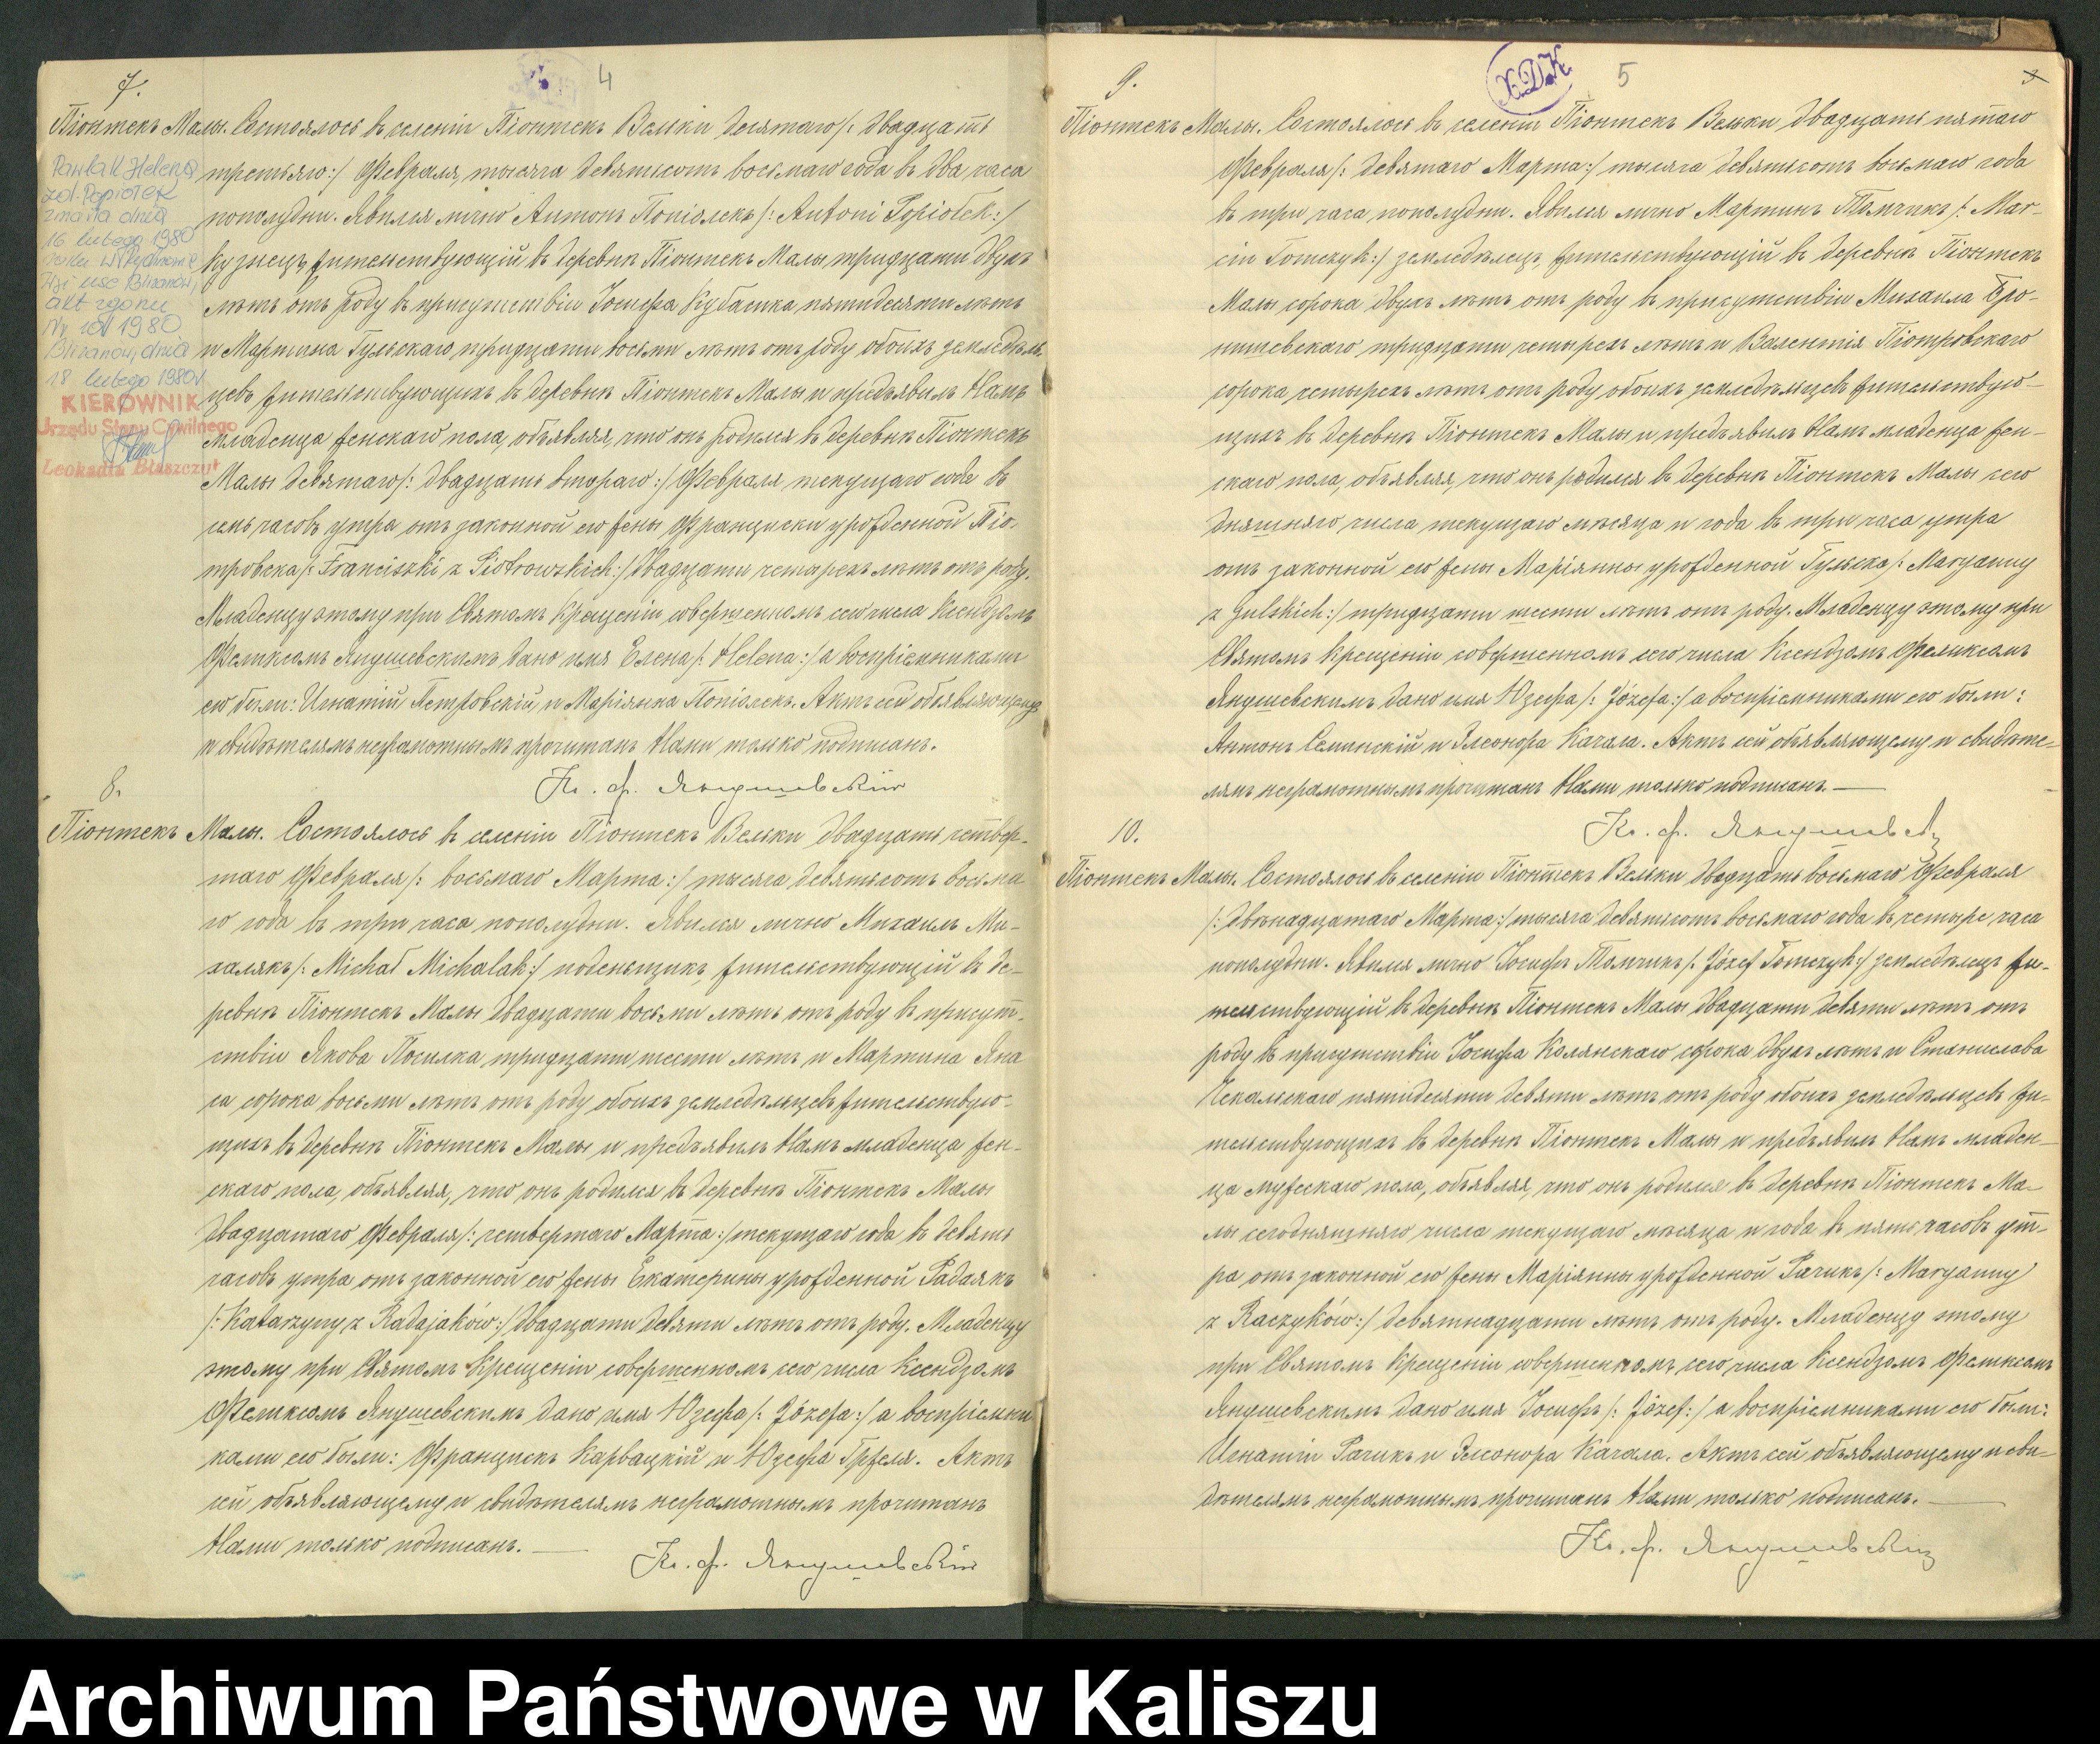 7.
4
Піонтекъ Малы. Состоялось въ селеніи Піонтекъ Вельки десятаго /: двадцать
третьяго :/ Февраля, тысяча девятьсотъ восьмаго года въ два часа
пополудни. Явился лично Антонъ Попіолекъ /: Antoni Popiołek :/
кузнецъ, жительствующій въ деревнѣ Піонтекъ Малы, тридцати двухъ
лѣтъ отъ роду въ присутствіи Іосифа Кубасика пятидесяти лѣтъ
и Мартина Гульскаго тридцати восьми лѣтъ отъ роду обоихъ земледѣль
цевъ жительствующихъ въ деревнѣ Піонтекъ Малы и предъявилъ Намъ
младенца женскаго пола, объявляя, что онъ родился въ деревнѣ Піонтекъ
Малы девятаго /: двадцать втораго :/ Февраля текущаго года въ
семь часовъ утра отъ законной его жены Франциски урожденной Піо-
тровска /: Franciszki z Piotrowskich :/ двадцати четырехъ лѣтъ отъ роду.
Младенцу этому при Святомъ Крещеніи совершенномъ сего числа Ксендзомъ
Феликсомъ Янушевскимъ дано имя Елена /: Helena :/ а воспріемниками
его были: Игнатій Петровскій и Маріянна Попіолекъ. Актъ сей объявляющему
и свидѣтелямъ неграмотнымъ прочитанъ Нами только подписанъ.
Кс. Ф. Янушевскій
Pawlak Helena
zd. Popiołek
zmarła dnia
16 lutego 1980
akt zgonu
Nr 10/1980
Blizanów, dnia
18 lutego 1980r
KIEROWNIK
Urzędu Stanu Cywilnego
Leokadia Błaszczyk
8.
Піонтекъ Малы. Состоялось въ селеніи Піонтекъ Вельки двадцать четвер-
таго Февраля /: восьмаго Марта :/ тысяча девятьсотъ восьма
го года въ три часа пополудни. Явился лично Михаилъ Ми-
халякъ /: Michał Michalak :/ поденьщикъ, жительствующій въ де-
ревнѣ Піонтекъ Малы двадцати восьми лѣтъ отъ роду въ присут-
ствіи Якова Посилка тридцати шести лѣтъ и Мартина Яна
са сорока восьми лѣтъ отъ роду обоихъ земледѣльцевъ жительствую-
щихъ въ деревнѣ Піонтекъ Малы и предъявилъ Намъ младенца жен-
скаго пола, объявляя, что онъ родился въ деревнѣ Піонтекъ Малы
двадцатаго Февраля /: четвертаго Марта :/ текущаго года въ девять
часовъ утра отъ законной его жены Екатерины урожденной Радаякъ
/: Katarzyny z Radajaków :/ двадцати девяти лѣтъ отъ роду. Младенцу
этому при Святомъ Крещеніи совершенномъ сего числа Ксендзомъ
Феликсомъ Янушевскимъ дано имя Юзефа /: Józefa :/ а воспріемни-
ками его были: Францискъ Карвацкій и Юзефа Гржеля. Актъ
сей объявляющему и свидѣтелямъ неграмотнымъ прочитанъ
Нами только подписанъ.
Кс. Ф. Янушевскій
9.
Х.Д.К.
5
3
Піонтекъ Малы. Состоялось въ селеніи Піонтекъ Вельки двадцать пятаго
Февраля /: девятаго Марта :/ тысяча девятьсотъ восьмаго года
въ три часа пополудни. Явился лично Мартинъ Томчикъ /: Mar-
cin Tomczyk :/ земледѣлецъ, жительствующій въ деревнѣ Піонтекъ
Малы сорока двухъ лѣтъ отъ роду въ присутствіи Михаила Бро-
нишевскаго тридцати четырехъ лѣтъ и Валентія Піотровскаго
сорока четырехъ лѣтъ отъ роду обоихъ земледѣльцевъ жительствую-
щихъ въ деревнѣ Піонтекъ Малы и предъявилъ Намъ младенца жен-
скаго пола, объявляя, что онъ родился въ деревнѣ Піонтекъ Малы сего
дняшняго числа текущаго мѣсяца и года въ три часа утра
отъ законной его жены Маріянны урожденной Гульска /: Maryanny
z Gulskich :/ тридцати шести лѣтъ отъ роду. Младенцу этому при
Святомъ Крещеніи совершенномъ сего числа Ксендзомъ Феликсомъ
Янушевскимъ дано имя Юзефа /: Józefa :/ а воспріемниками его были:
Антонъ Сетинскій и Элеонора Качала. Актъ сей объявляющему и свидѣте-
лямъ неграмотнымъ прочитанъ Нами только подписанъ.
Кс. Ф. Янушевскій
10.
Піонтекъ Малы. Состоялось въ селеніи Піонтекъ Вельки двадцать восьмаго Февраля
/: двѣнадцатаго Марта :/ тысяча девятьсотъ восьмаго года въ четыре часа
пополудни. Явился лично Іосифъ Томчикъ /: Józef Tomczyk :/ земледѣлецъ жи-
тельствующій въ деревнѣ Піонтекъ Малы двадцати девяти лѣтъ отъ
роду въ присутствіи Іосифа Колянскаго сорока двухъ лѣтъ и Станислава
Чекальскаго пятидесяти девяти лѣтъ отъ роду обоихъ земледѣльцевъ жи-
тельствующихъ въ деревнѣ Піонтекъ Малы и предъявилъ Намъ младен-
ца мужескаго пола, объявляя, что онъ родился въ деревнѣ Піонтекъ Ма-
лы сегодняшняго числа текущаго мѣсяца и года въ пять часовъ ут-
ра отъ законной его жены Маріянны урожденной Рачикъ /: Maryanny
z Raczyków :/ девятнадцати лѣтъ отъ роду. Младенцу этому
при Святомъ Крещеніи совершенномъ сего числа Ксендзомъ Феликсомъ
Янушевскимъ дано имя Іосифъ /: Józef :/ а воспріемниками его были:
Игнатій Рачикъ и Элеонора Качала. Актъ сей объявляющему и сви-
дѣтелямъ неграмотнымъ прочитанъ Нами только подписанъ.
Кс. Ф. Янушевскій
Archiwum Państwowe w Kaliszu